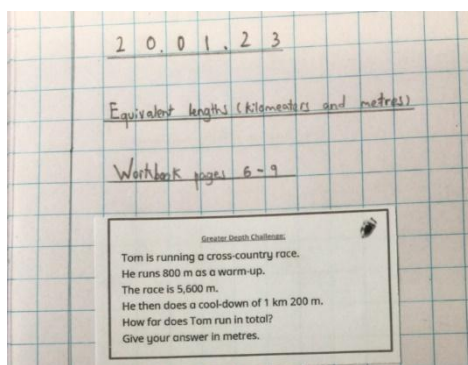 20.01.23
Equivalent lengths (kilomeaters and metres)
Workbook pages 6-9
Greater Depth Challenge:
Tom is running a cross-country race.
He runs 800 m as a warm-up.
The race is 5,600 m.
He then does a cool-down of 1 km 200 m.
How far does Tom run in total?
Give your answer in metres.